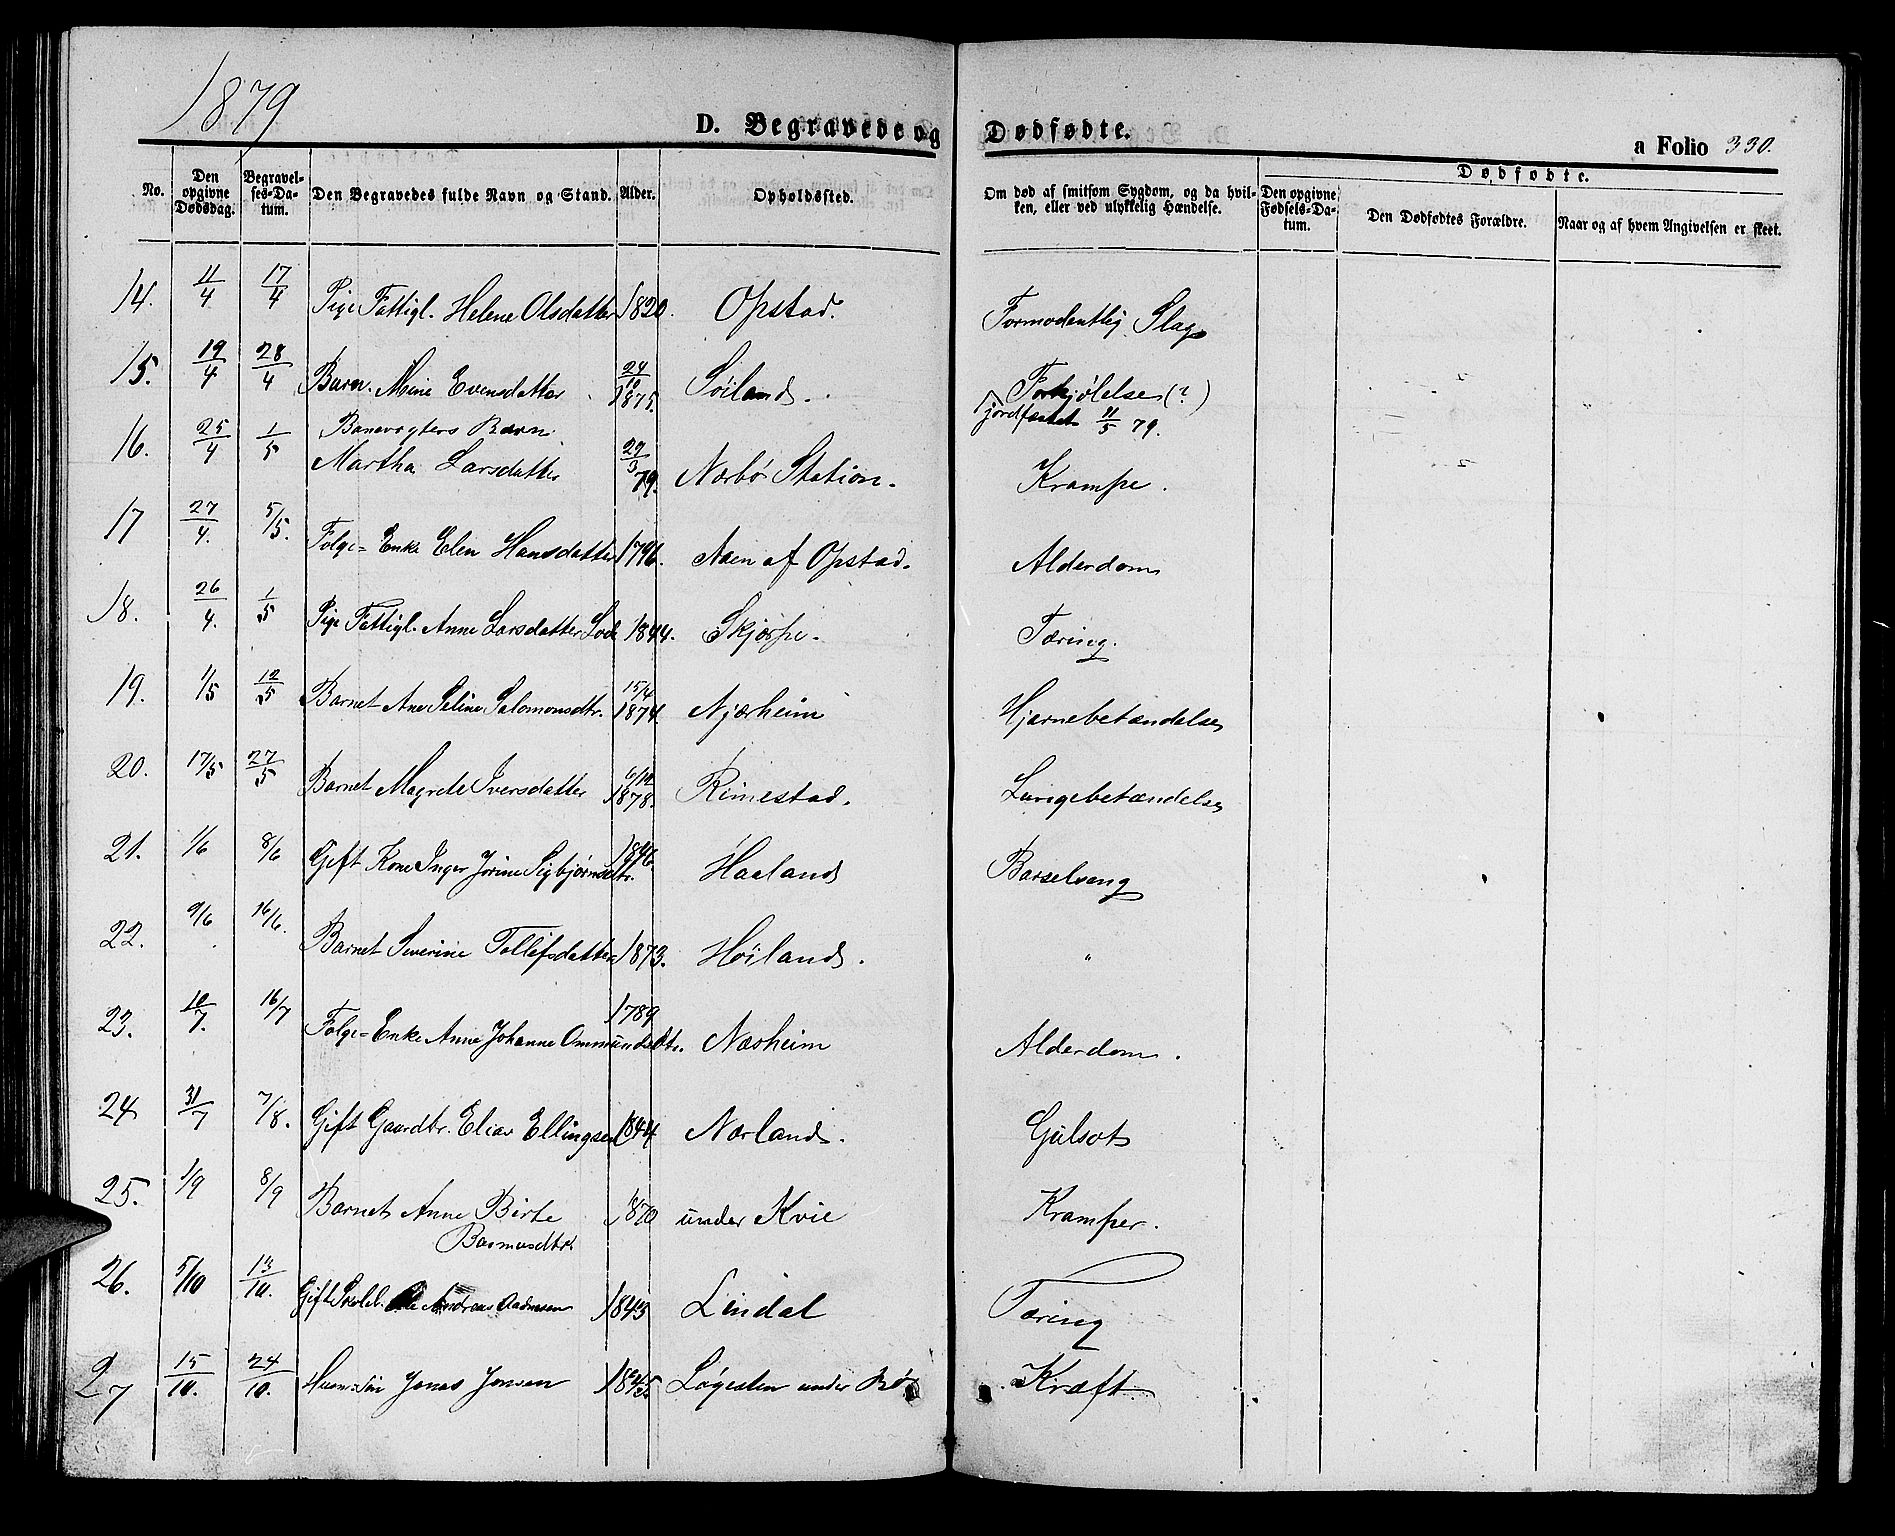 1879
D. Begravede og Dødfødte.
a Folio 330.
No. Den opgivne Dødsdag. Begravelses-Datum. Den Begravedes fulde Navn og Stand. Alder. Opholdssted. Om død af smitsom Sygdom, og da hvilken, eller ved ulykkelig Hændelse. Den opgivne Fødsels-Datum. Dødfødte. Den Dødfødtes Forældre. Naar og af hvem Angivelsen er skeet.
14. 11/4 17/4 Pige Fattigl. Helene Olsdatter 1820. Opstad. Formodentlig Slag
15. 19/4 28/4 Barn. Mine Evensdatter 24/10 1875. Søiland. Forkjølelse (?)
jordfæstet 11/5 79.
16. 25/4 1/5 Banevogters Barn
Martha Larsdatter 3 79. Nærbø Station. Krampe.
17 27/4. 5/5. Folge-Enke Elen Hansdatter 1796. Næen af Opstad. Alderdom
18. 26/4. 1/5 Pige Fattigl. Anne Larsdatter 1844. Skjærpe. Tæring.
19. 1/5 12/5 Barnet Ane Seline Salomonsdtr. 15/4 1874. Njærheim Hjernebetændelse
20. 17/5 27/5 Barnet Magrete Iversdatter 6/12 1878. Rimestad. Lungebetændelse
21. 1/6 8/6 Gift Kone Inger Jorine Sigbjørnsdtr. 1846. Haaland Barselseng
22. 9/6 16/6. Barnet Severine Tollefsdatter 1873. Høiland. "
23. 10/7. 16/7 Folge-Enke Anne Johanne Ommundsdtr. 1789 Næsheim Alderdom.
24 31/7 7/8. Gift Gaardbr. Elias Ellingsen 1844 Nærland. Gulsot
25. 1/9 8/9 Barnet Anne Birte
Rasmusdtr 1870 under Kvie Kramper.
26. 5/10 13/10. Gift Ole Andreas Aadnesen 1843 Lindal Tæring
27 15/10. 24/10. Jonas Jonsen 1845. under Bø Kræft.